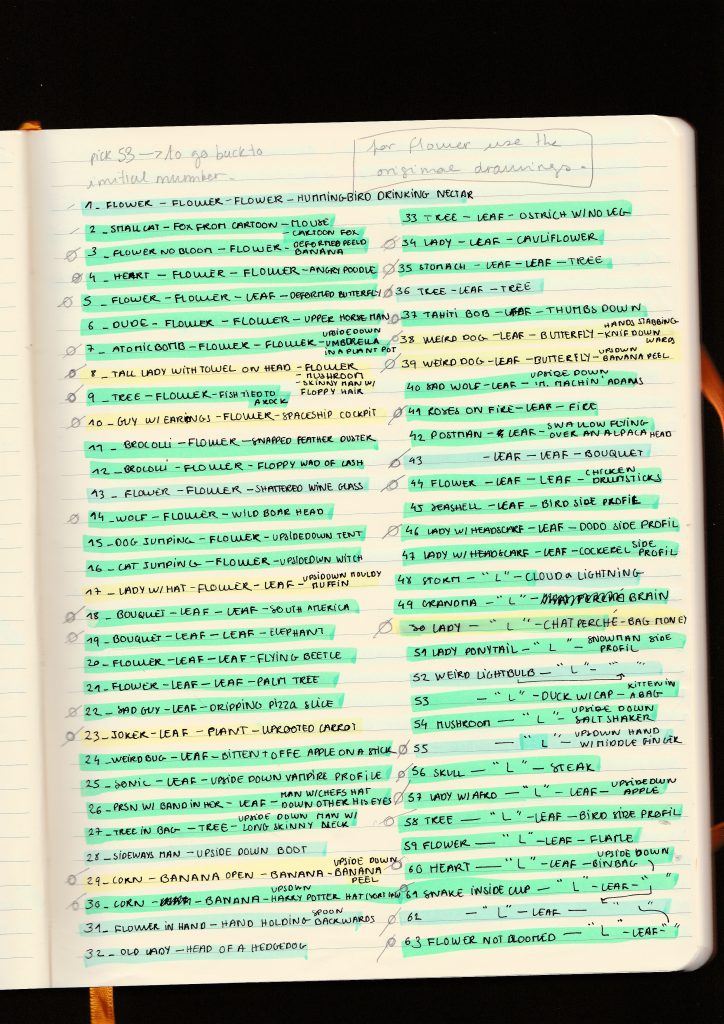 pick 53 —> to go back to
initial number.
for flower use the
original drawings.
1 - FLOWER - FLOWER - FLOWER - HUMMINGBIRD DRINKING NECTAR
2 - SMALL CAT - FOX FROM CARTOON - MOUSE
- CARTOON FOX
3 - FLOWER NO BLOOM - FLOWER - DEFORMED PEELD
BANANA
4 - HEART - FLOWER - FLOWER - ANGRY POODLE
5 - FLOWER - FLOWER - LEAF - DEFORMED BUTTERFLY
6 - DUDE - FLOWER - FLOWER - UPPER HORSE MAN
7 - ATOMIC BOMB - FLOWER - FLOWER - UPSIDE DOWN
UMBRELLA
IN A PLANT POT
8 - TALL LADY WITH TOWEL ON HEAD - FLOWER
- MUSHROOM
9 - TREE - FLOWER - FISH TIED TO
A ROCK
- SKINNY MAN W/
FLOPPY HAIR
10 - GUY W/ EARINGS - FLOWER - SPACESHIP COCKPIT
11 - BROCOLLI - FLOWER - SNAPPED FEATHER DUSTER
12 - BROCOLLI - FLOWER - FLOPPY WAD OF CASH
13 - FLOWER - FLOWER - SHATTERED WINE GLASS
14 - WOLF - FLOWER - WILD BOAR HEAD
15 - DOG JUMPING - FLOWER - UPSIDEDOWN TENT
16 - CAT JUMPING - FLOWER - UPSIDEDOWN WITCH
17 - LADY W/ HAT - FLOWER - LEAF - UPSIDOWN MOULDY
MUFFIN
18 - BOUQUET - LEAF - LEAF - SOUTH AMERICA
19 - BOUQUET - LEAF - LEAF - ELEPHANT
20 - FLOWER - LEAF - LEAF - FLYING BEETLE
21 - FLOWER - LEAF - LEAF - PALM TREE
22 - SAD GUY - LEAF - DRIPPING PIZZA SLICE
23 - JOKER - LEAF - PLANT - UPROOTED CARROT
24 - WEIRD BUG - LEAF - BITTEN TOFFE APPLE ON A STICK
25 - SONIC - LEAF - UPSIDE DOWN VAMPIRE PROFILE
26 - PRSN W/ BAND IN HER - LEAF - MAN W/ CHEFS HAT
DOWN OTHER HIS EYES
27 - TREE IN BAG - TREE - UPSIDE DOWN MAN W/
LONG SKINNY NECK
28 - SIDEWAYS MAN - UPSIDE DOWN BOOT
29 - CORN - BANANA OPEN - BANANA - UPSIDE DOWN
BANANA
PEEL
30 - CORN - BANANA - UPSDOWN
HARRY POTTER HAT
31 - FLOWER IN HAND - HAND HOLDING SPOON
BACKWARDS
32 - OLD LADY - HEAD OF A HEDGEDOG
33 TREE - LEAF - OSTRICH W/ NO LEG
34 LADY - LEAF - CAULIFLOWER
35 STOMACH - LEAF - LEAF - TREE
36 TREE - LEAF - TREE
37 TAHITI BOB - LEAF - THUMBS DOWN
38 WEIRD DOG - LEAF - BUTTERFLY - HANDS STABBING
KNIF DOWN
WARDS
39 WEIRD DOG - LEAF - BUTTERFLY - UPSDOWN
BANANA PEEL
40 SAD WOLF - LEAF - UPSIDE DOWN
M. MACHIN ADAMS
41 ROSES ON FIRE - LEAF - FIRE
42 POSTMAN - LEAF - SWALLOW FLYING
OVER AN ALPACA HEAD
43 - LEAF - LEAF - BOUQUET
44 FLOWER - LEAF - LEAF - CHICKEN
DRUMSTICKS
45 SEASHELL - LEAF - BIRD SIDE PROFIL
46 LADY W/ HEADSCARF - LEAF - DODO SIDE PROFIL
47 LADY W/ HEADSCARF - LEAF - COCKEREL SIDE
PROFIL
48 STORM - " L " - CLOUD & LIGHTNING
49 GRANDMA - " L " - BRAIN
50 LADY - " L " - CHAT PERCHÉ - BAG MONEY
51 LADY PONYTAIL - " L " - SNOWMAN SIDE
PROFIL
52 WEIRD LIGHTBULB - " L " - " "
53 - " L " - DUCK W/ CAP - KITTEN IN
A BAG
54 MUSHROOM - " L " - UPSIDE DOWN
SALT SHAKER
55 - " L " - UPSDOWN HAND
W/ MIDDLE FINGER
56 SKULL - " L " - STEAK
57 LADY W/ AFRO - " L " - LEAF - UPSIDEDOWN
APPLE
58 TREE - " L " - LEAF - BIRD SIDE PROFIL
59 FLOWER - " L " - LEAF - FLAME
60 HEART - " L " - LEAF - UPSIDE DOWN
BINBAG
61 SNAKE INSIDE CUP - " L " - LEAF - " "
62 - " L " - LEAF - " "
63 FLOWER NOT BLOOMED - " L " - LEAF - " "